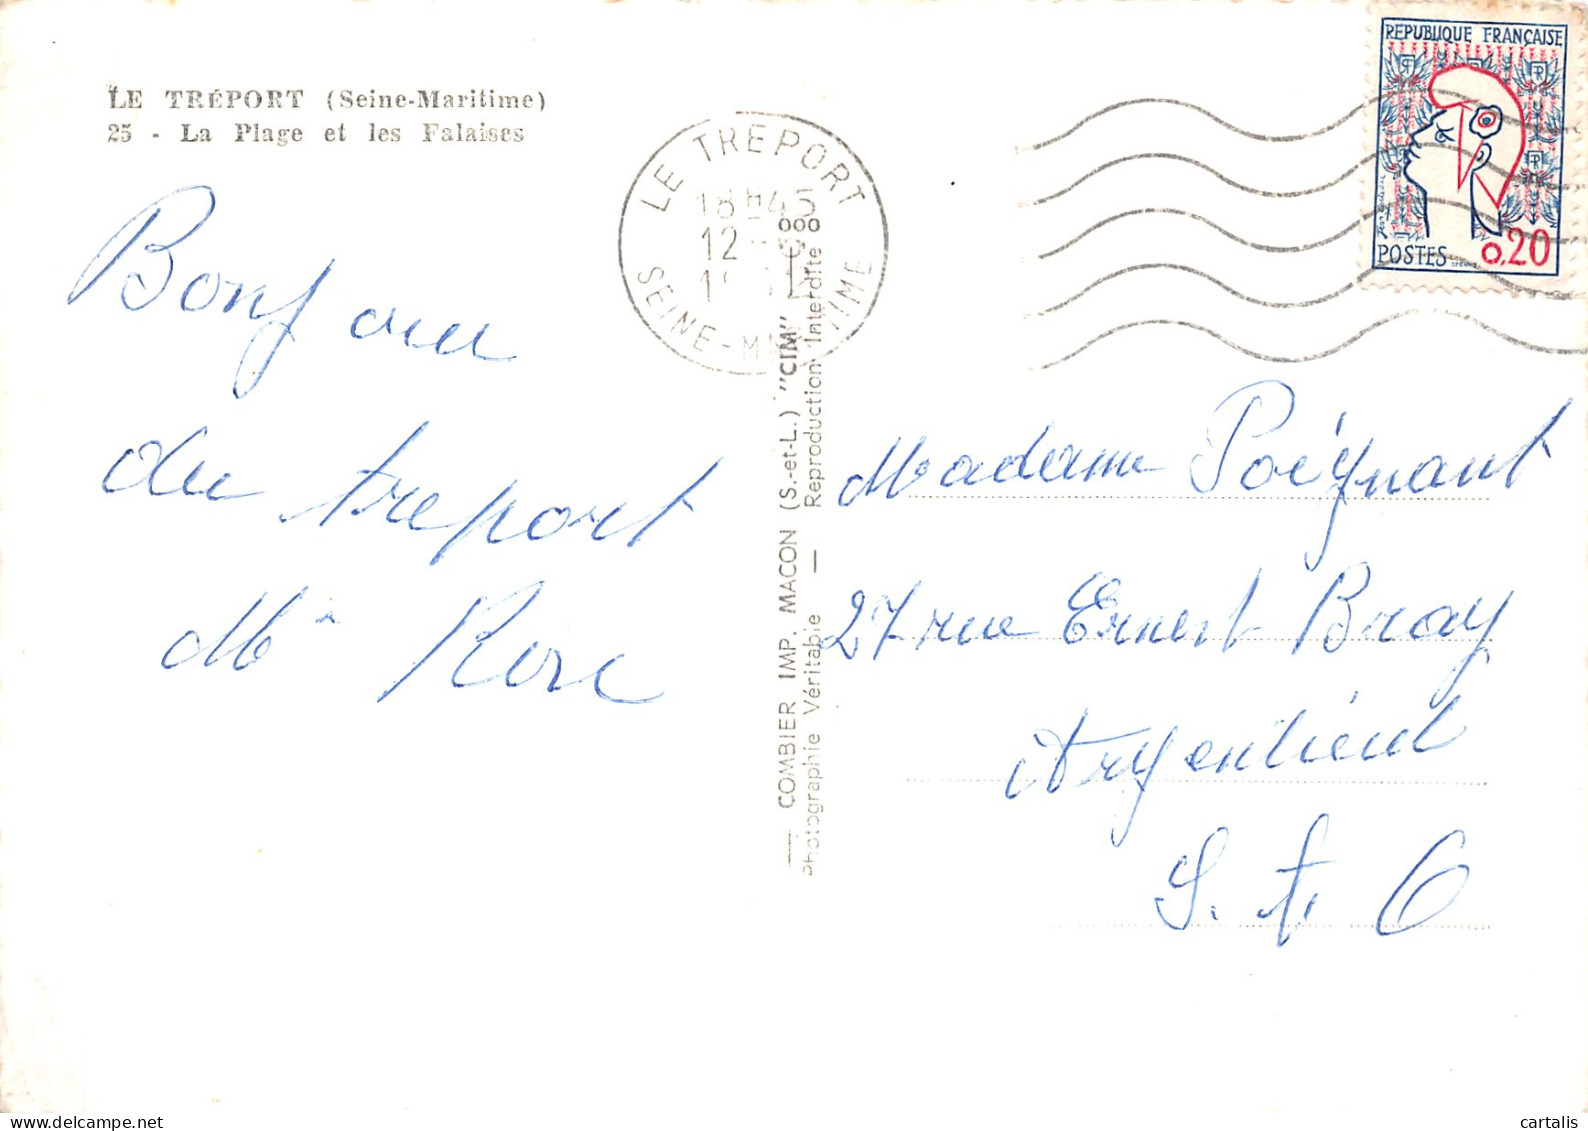 LE TRÉPORT (Seine-Maritime)
25 - La Plage et les Falaises
Bonjour
du treport
Me Rose
LE TREPORT
18H45
12
SEINE-MARITIME
— COMBIER IMP. MACON (S.-et-L.) "CIM"
Photographie Véritable — Reproduction Interdite
REPUBLIQUE FRANÇAISE
POSTES 0,20
Madame Poëgnant
27 rue Ernest Bray
Argentieul
S. et. O
cartalis
delcampe.net